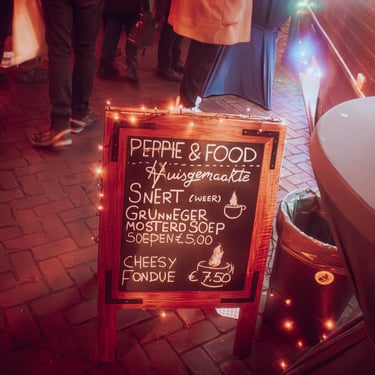 PEPPIE & FOOD
Huisgemaakte
SNERT (WEER)
GRUNNEGER
MOSTERDSOEP
SOEPEN €5,00
CHEESY
FONDUE €7.50